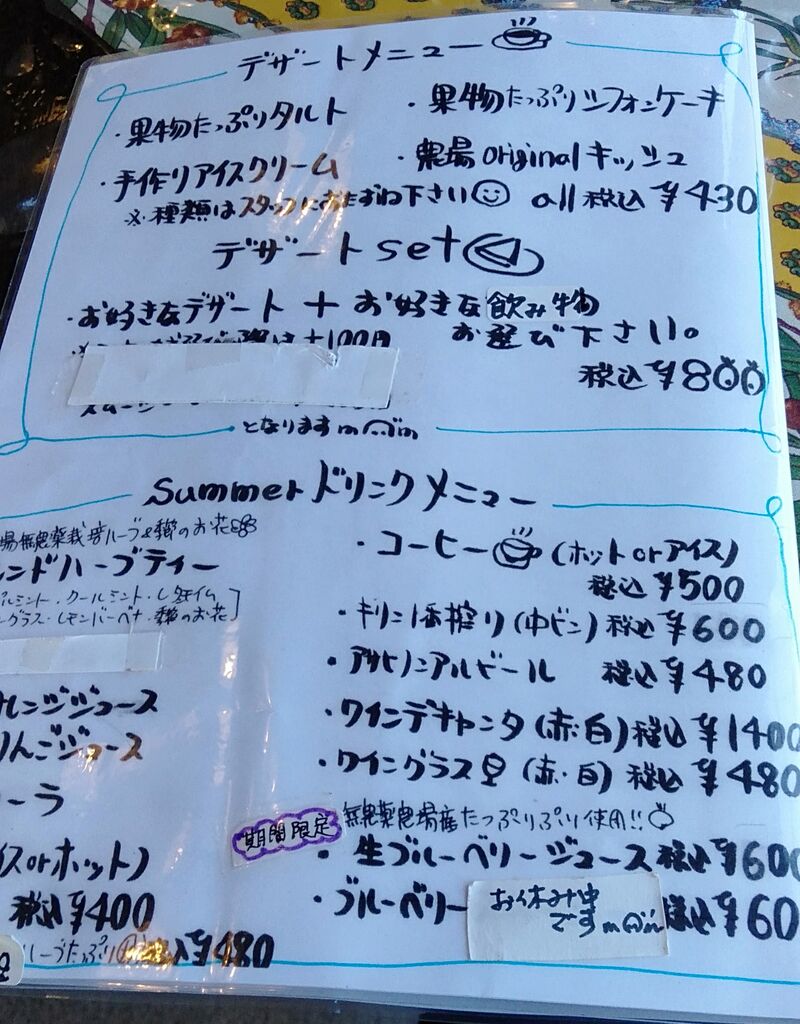 デザートメニュー
・果物たっぷりタルト
・果物たっぷりシフォンケーキ
・手作りアイスクリーム
・農場originalキッシュ
※種類はスタッフにおたずね下さい all 税込¥430
デザートset
・お好きなデザート + お好きな飲み物
お選び下さい。
+100円
税込¥800
となりますm m
summerドリンクメニュー
場無農薬栽培ハーブ&
のお花
ンドハーブティー
ルミント・クールミント・
グラス・レモンバーベナ・
のお花
レンジジュース
りんごジュース
ーラ
スorホット)
税込¥400
ハーブたっぷり
込¥480
・コーヒー (ホットorアイス)
税込¥500
・キリン一番搾り(中ビン)税込¥600
・アサヒノンアルビール 税込¥480
・ワインデキャンタ(赤・白)税込¥1400
・ワイングラス(赤・白)税込¥480
期間限定
無農薬農場産たっぷりぷり使用!!
・生ブルーベリージュース税込¥600
・ブルーベリー
お休み中
ですm m
税込¥60